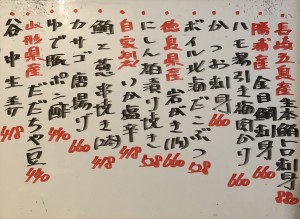 長崎五島産 生本鮪トロ刺身 880
勝浦産 金目鯛刺身 660
ハモ湯引き梅肉かけ 660
かつお刺身 660
ボイル北海だこぶつ 538
徳島県産 岩がき(1ヶ) 660
にしん粕漬け焼き 538
自家製 いか塩辛 418
鮪と葱串焼き(2本) 660
カサゴ唐揚げ 660
ゆで豚ポン酢 440
山形県産 だだちゃ豆 440
谷中生姜 418